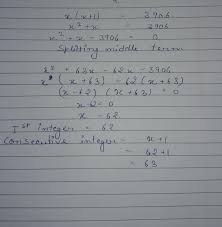 x(x+1) = 3906
x² + x = 3906
x² + x - 3906 = 0
Splitting middle term
x² + 63x - 62x - 3906
x (x + 63) - 62 (x + 63)
(x - 62) (x + 63) = 0
x - 62 = 0
x = 62
Ist integer = 62
Consecutive integer = x+1
= 62+1
= 63